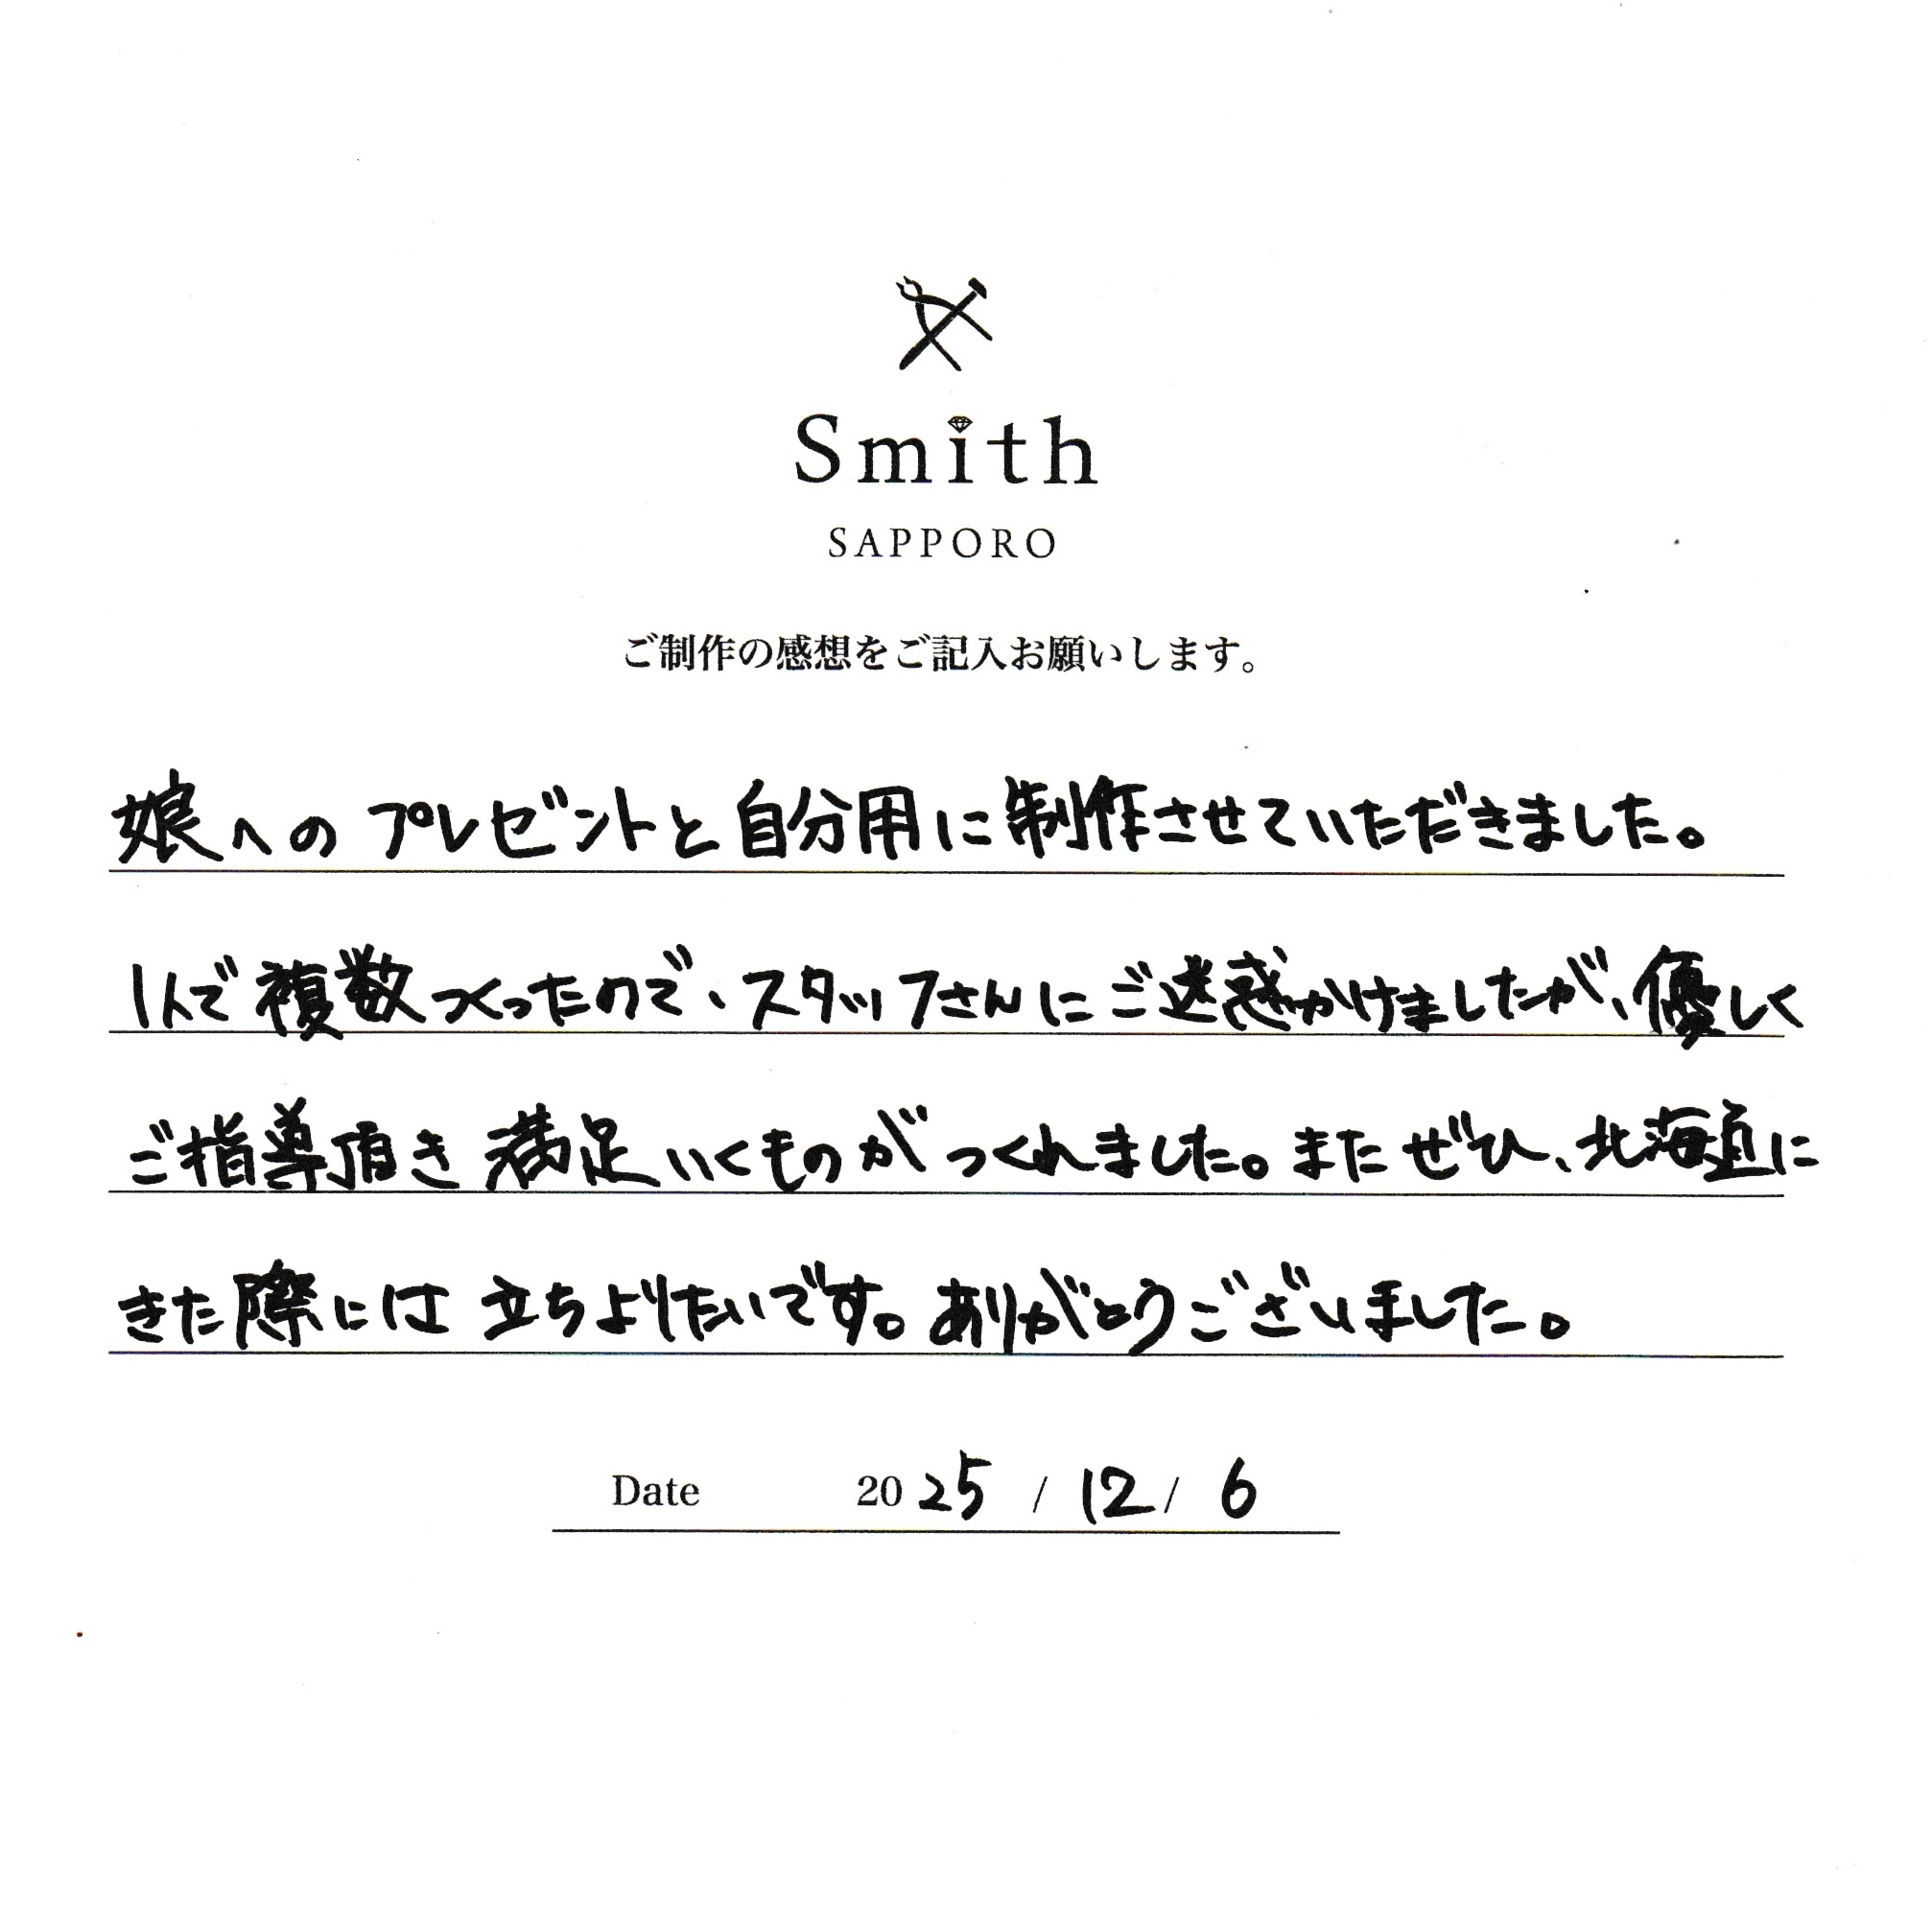 Smith
SAPPORO
ご制作の感想をご記入お願いします。
娘へのプレゼントと自分用に制作させていただきました。
1人で複数つくったので、スタッフさんにご迷惑かけましたが、優しく
ご指導頂き満足いくものがつくれました。またぜひ、北海道に
きた際には立ちよりたいです。ありがとうございました。
Date 2025 / 12 / 6